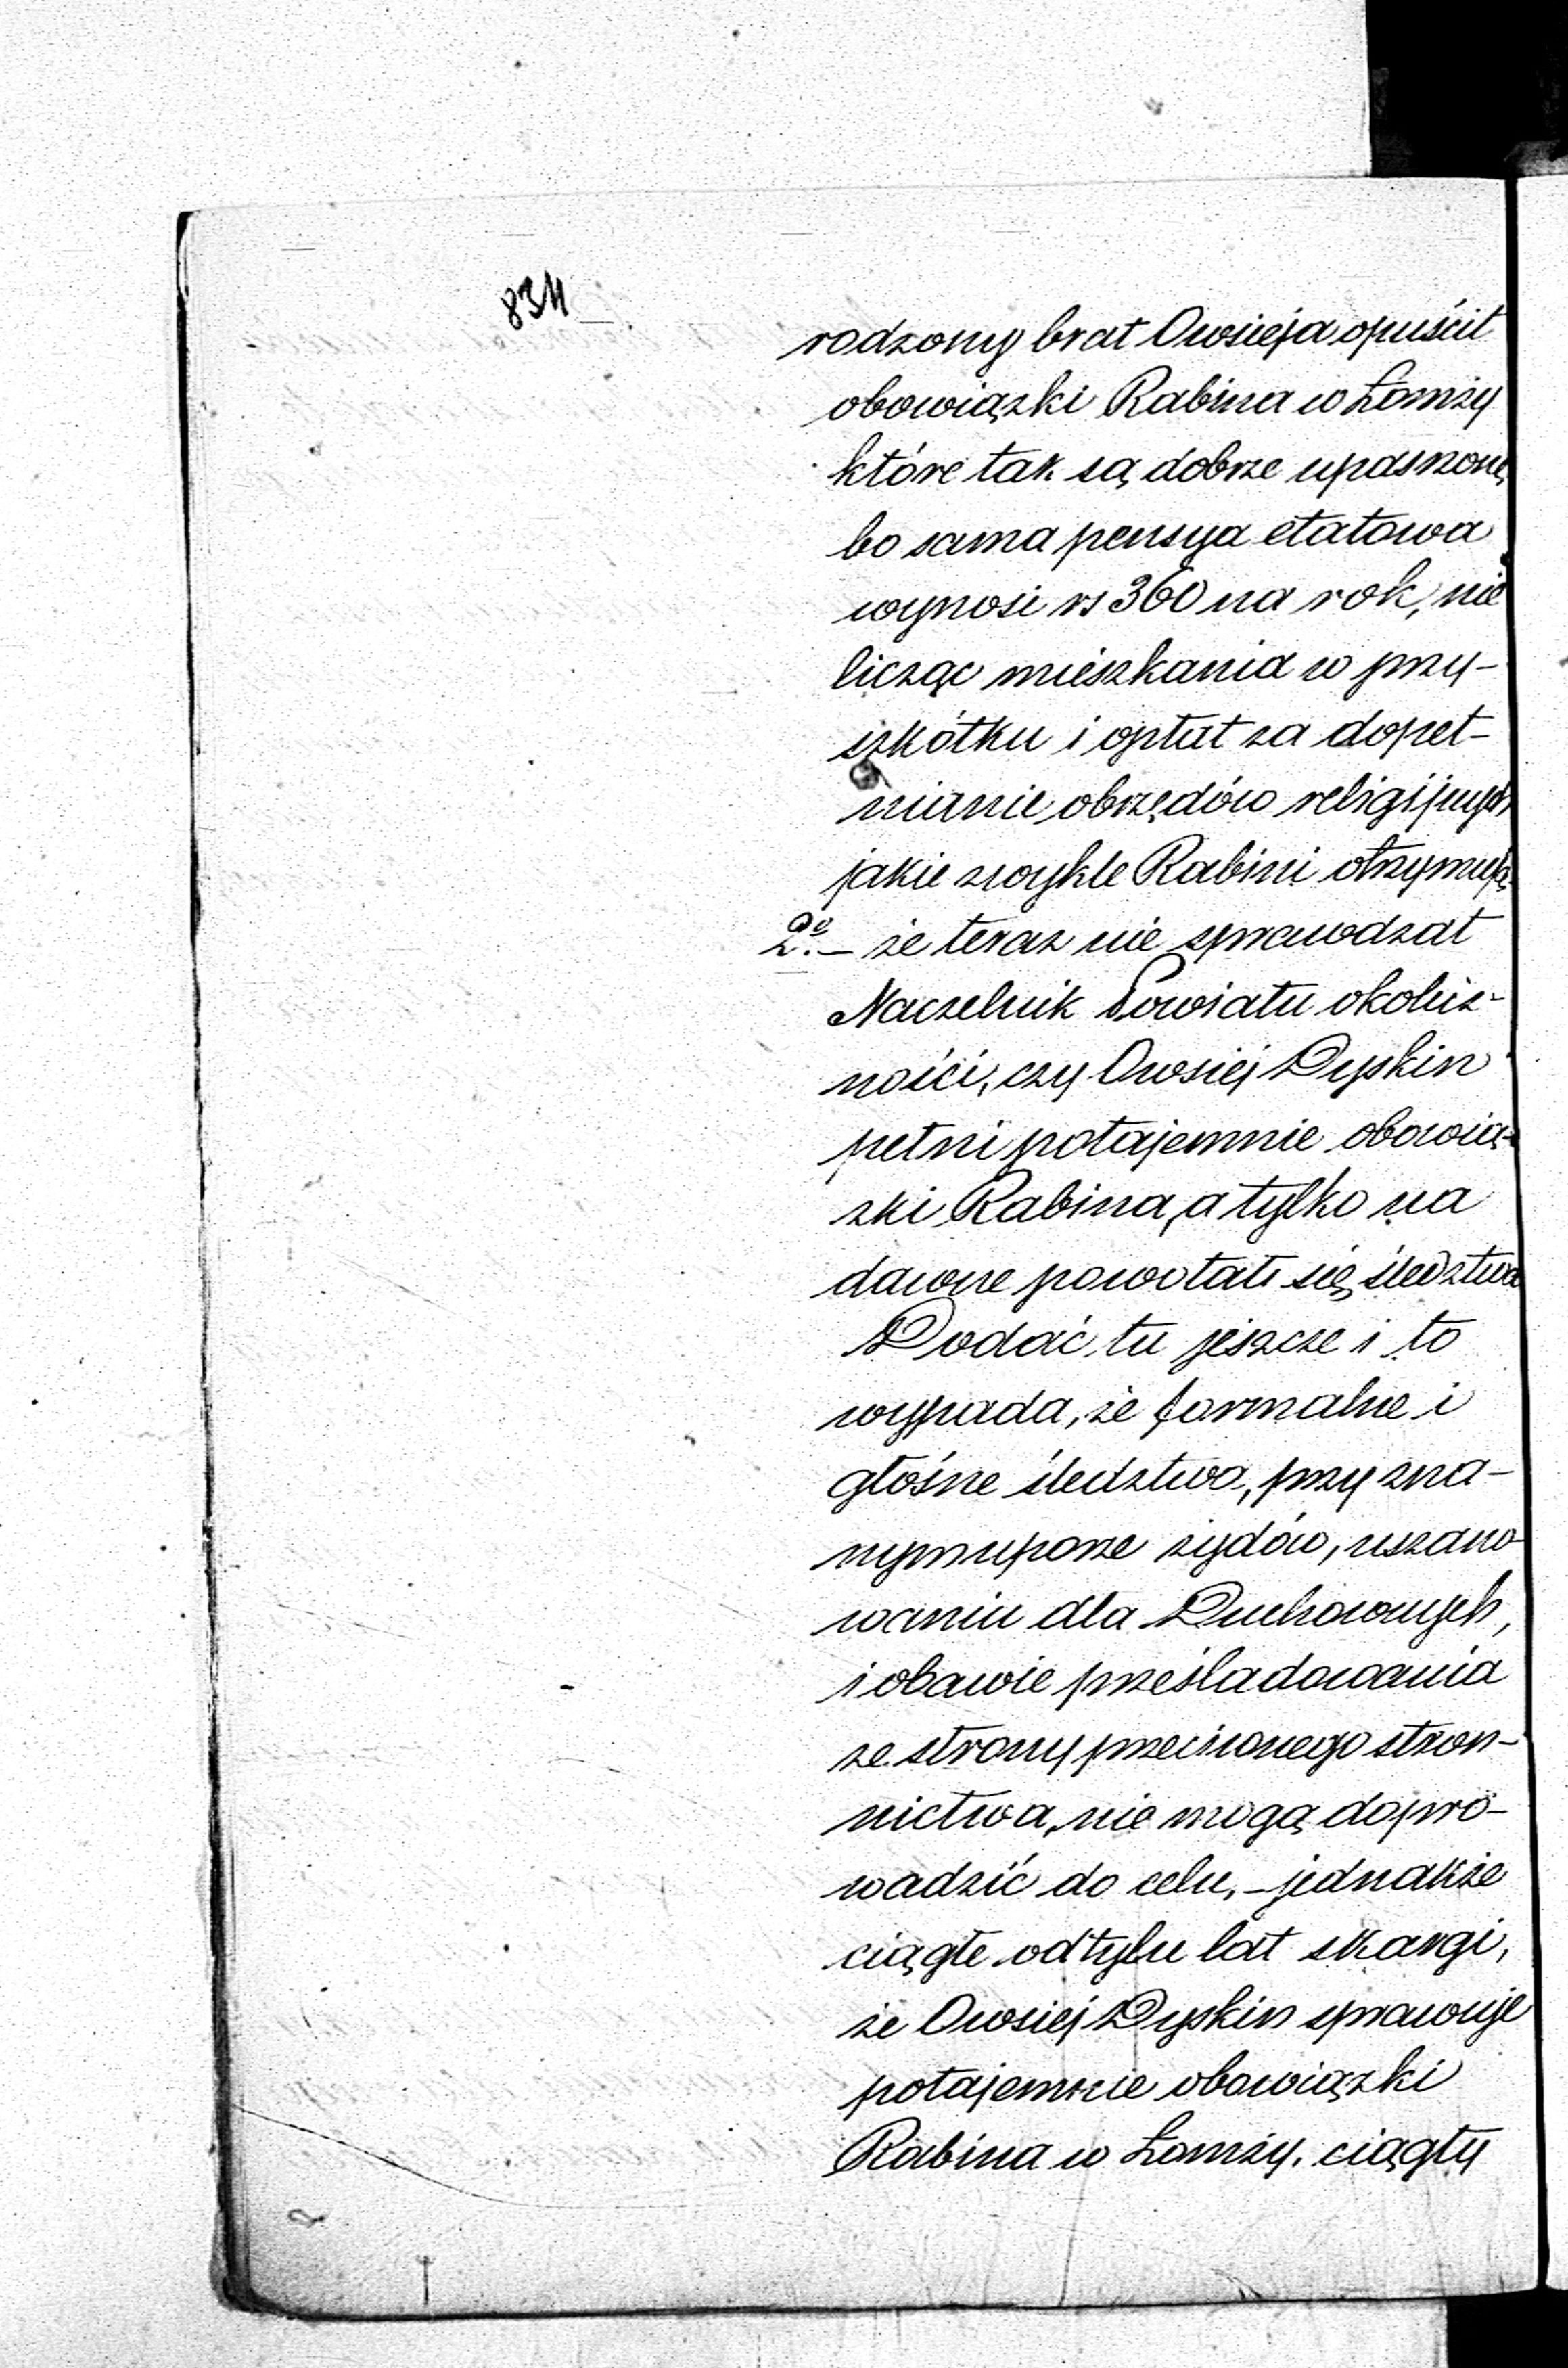 834
rodzony brat Owsieja opuścił
obowiązki Rabina w Łomży
które tak są dobrze uposażone,
bo sama pensya etatowa
wynosi rs 360 na rok, nie
licząc mieszkania w przy-
szkółku i opłat za dopeł-
nianie obrzędów religijnych
jakie zwykle Rabini otrzymują.
2º. – że teraz nie sprawdzał
Naczelnik Powiatu okolicz-
ności, czy Owsiej Dyskin
pełni potajemnie obowią-
zki Rabina, a tylko na
dawne powołał się śledztwa
Dodać tu jeszcze i to
wypada, że formalne i
głośne śledztwa, przy zna-
nym uporze żydów, uszano-
waniu dla Duchownych,
i obawie prześladowania
ze strony przeciwnego stron-
nictwa, nie mogą dopro-
wadzić do celu, – jednakże
ciągłe od tylu lat skargi,
że Owsiej Dyskin sprawuje
potajemnie obowiązki
Rabina w Łomży, ciągły